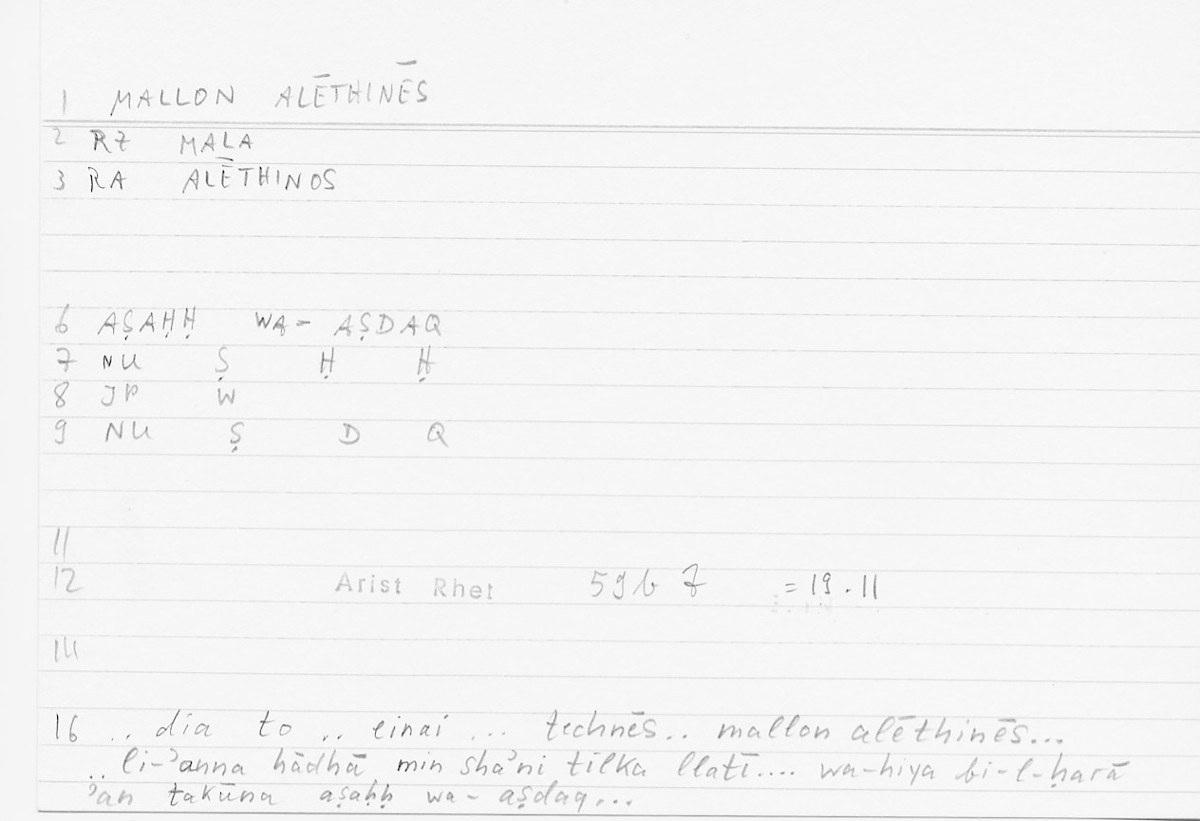 1 MALLON ALĒTHINĒS
2 RZ MALA
3 RA ALĒTHINOS
6 AṢAḤḤ WA- AṢDAQ
7 NU Ṣ Ḥ Ḥ
8 JP W
9 NU Ṣ D Q
11
12 Arist Rhet 59b 7 = 19.11
14
16 .. dia to .. einai ... technēs.. mallon alēthinēs...
.. li-ʾanna hādhā min shaʾni tilka llatī.... wa-hiya bi-l-ḥarā
ʾan takūna aṣaḥḥ wa- aṣdaq...